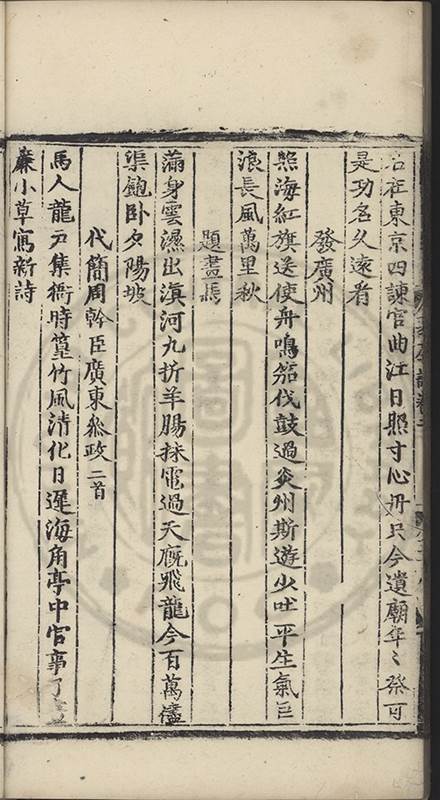 右在東京四諫官曲江日照寸心丹只今遺廟年〻祭
是功名久遠看
發廣州
照海紅旗送使舟鳴笳伐鼓過炎州斯遊少吐平生氣巨
浪長風萬里秋
題畫馬
滿身雲濕出滇河九折羊腸掠電過天廐飛龍今百萬儘
渠飽卧夕陽坡
代簡周幹臣廣東叅政二首
馬人龍戶集衙時篁竹風清化日遲海角亭中官事了
簾小草寫新詩